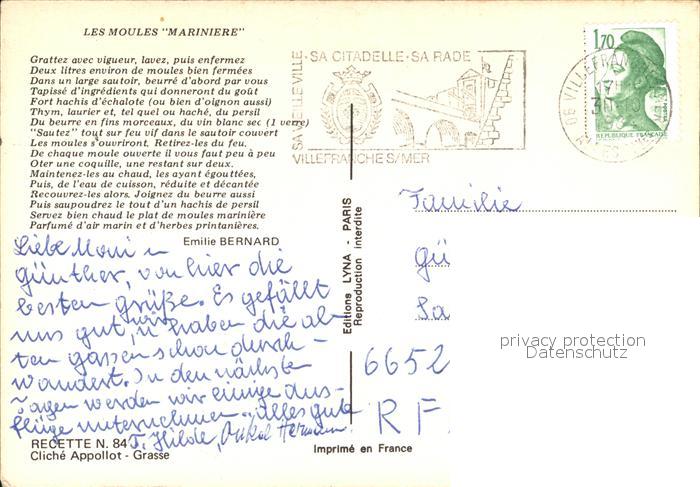 LES MOULES "MARINIERE"
Grattez avec vigueur, lavez, puis enfermez
Deux litres environ de moules bien fermées
Dans un large sautoir, beurré d'abord par vous
Tapissé d'ingrédients qui donneront du goût
Fort hachis d'échalote (ou bien d'oignon aussi)
Thym, laurier et, tel quel ou haché, du persil
Du beurre en fins morceaux, du vin blanc sec (1 verre)
"Sautez" tout sur feu vif dans le sautoir couvert
Les moules s'ouvriront. Retirez-les du feu.
De chaque moule ouverte il vous faut peu à peu
Oter une coquille, une restant sur deux.
Maintenez-les au chaud, les ayant égouttées,
Puis, de l'eau de cuisson, réduite et décantée
Recouvrez-les alors. Joignez du beurre aussi
Puis saupoudrez le tout d'un hachis de persil
Servez bien chaud le plat de moules marinière
Parfumé d'air marin et d'herbes printanières.
Emilie BERNARD
Liebe Moni u
Günther, von hier die
besten Grüße. Es gefällt
uns gut, wir haben die al-
ten Gassen schon durch-
wandert. In den nächsten
Tagen werden wir einige Aus-
flüge unternehmen. Alles gute
T. Hilde, Onkel Hermann
RECETTE N. 84
Cliché Appollot - Grasse
Imprimé en France
Editions LYNA - PARIS
Reproduction interdite
SA VIEILLE VILLE · SA CITADELLE · SA RADE
VILLEFRANCHE S/MER
1,70
REPUBLIQUE FRANÇAISE
Familie
Gü
Sa
6652
R F.
privacy protection
Datenschutz